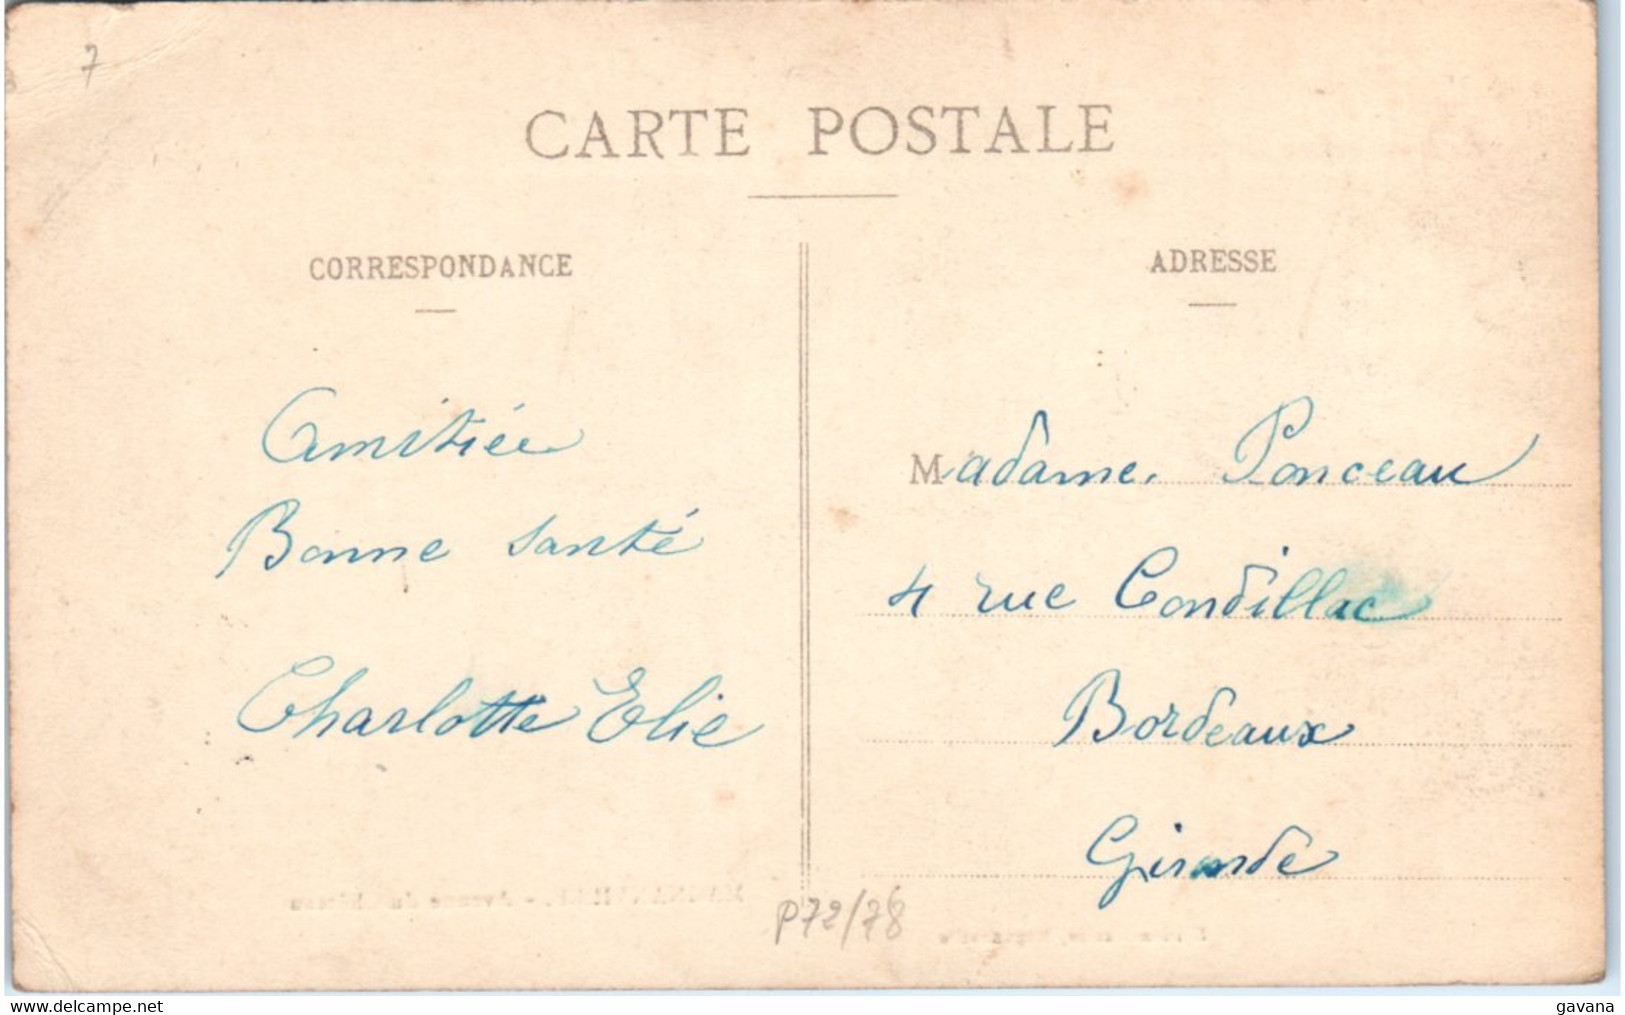 7
CARTE POSTALE
CORRESPONDANCE
Amitiée
Bonne santé
Charlotte Elie
ADRESSE
Madame Ponceau
4 rue Condillac
Bordeaux
Gironde
- Avenue du Château
P72/78
gavana